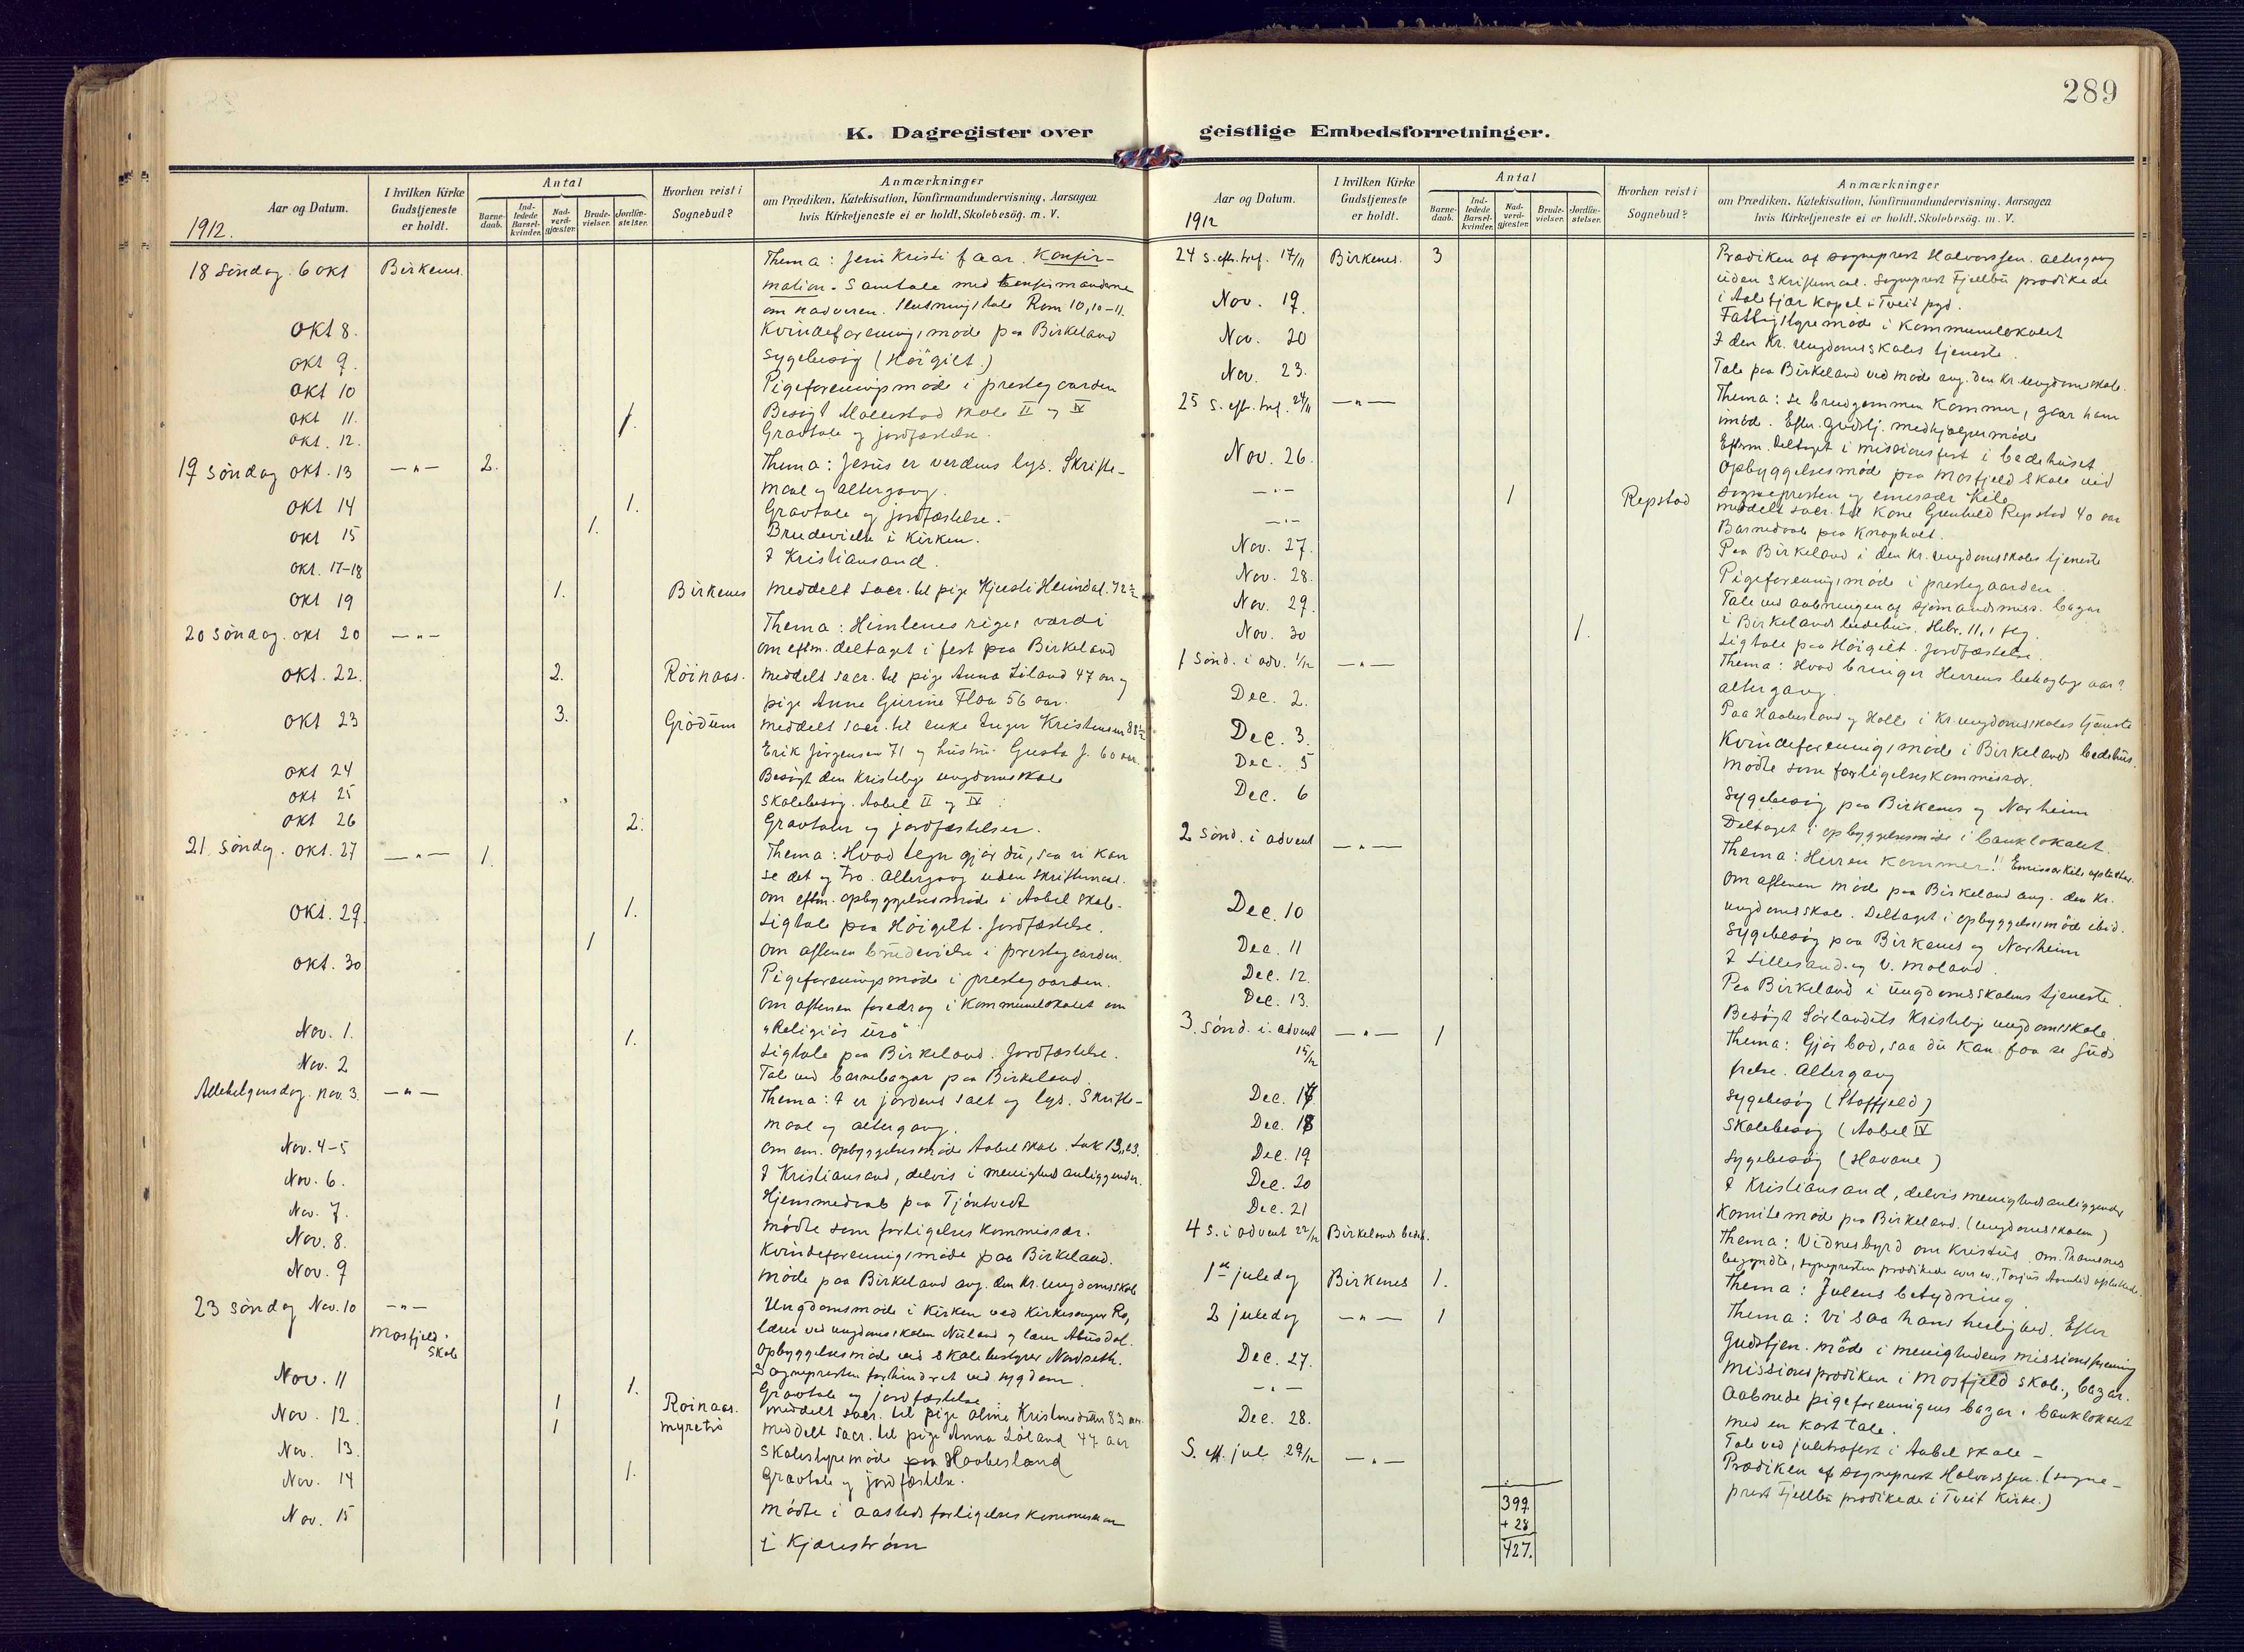 289
K. Dagregister over
Aar og Datum.
I hvilken Kirke Gudstjeneste er holdt.
Antal
Barnedaab.
Indledede Barselkvinder.
Nadverdgjæster.
Brudevielser.
Jordfæstelser.
Hvorhen reist i Sognebud?
Anmærkninger
om Prædiken, Katekisation, Konfirmandundervisning, Aarsagen
hvis Kirketjeneste ei er holdt, Skolebesög. m. V.
1912.
18 Söndag. 6 okt Birkenes. Thema: Jesu Kristi faar. Konfir-
mation. Samtale med konfirmanderne
om nadveren. Slutningstale Rom 10,10-11.
Okt 8. Kvindeforeningsmøde paa Birkeland
Okt 9. Sygebesøg (Höigilt.)
Okt 10 Pigeforeningsmøde i prestegaarden
Okt 11. Besøgt Mollestad skole II og IV
Okt. 12. 1. Gravtale og jordfæstelse.
19 Söndag Okt. 13 —„— 2. Thema: Jesus er verdens lys. Skrifte-
maal og altergang.
Okt 14 1. Gravtale og jordfæstelse.
Okt 15 1. Brudevielse i Kirken.
Okt. 17-18 I Kristiansand.
Okt 19 1. Birkenes Meddelt sacr. til pige
20 Söndag. Okt 20 —„— Thema: Himlenes riges værdi
om eftm. deltaget i fest paa Birkeland
Okt. 22. 2. Röinaas. Meddelt sacr. til pige Anna Löland 47 aar og
pige Anne Gurine Flaa 56 aar.
Okt 23 3. Grödum Meddelt sacr. til enke Inger Kristensen 88½
Erik Jörgensen 71 og hustru Gusta J. 60 aar.
Okt 24 Besøgt den kristelige ungdomsskole
Okt 25 Skolebesøg. Aabel II og IV
Okt 26 2. Gravtaler og jordfæstelser.
21. Söndag. Okt. 27 —„— 1. Thema: Hvad tegn gjör du, saa vi kan
se det og tro. Altergang uden skriftemaal.
om eftm. opbyggelsesmøde i Aabel skole.
Okt. 29. 1. Ligtale paa Höigilt. Jordfæstelse.
1 Om aftenen brudevielse i prestegaarden.
Okt. 30 Pigeforeningsmøde i prestegaarden.
Om aftenen foredrag i Kommunelokalet om
„Religiös uro"
Nov. 1. 1. Ligtale paa Birkeland. Jordfæstelse.
Nov. 2 Tale ved barnebazar paa Birkeland.
Allehelgensdag. Nov. 3. —„— Thema: I er jordens salt og lys. Skrifte-
maal og altergang.
Om em. opbyggelsesmøde Aabel skole. Luk 13,23.
Nov. 4-5 I Kristiansand, delvis i menighedsanliggender.
Nov. 6. Hjemmedaab paa Tjöntvedt
Nov. 7. Mödte som forligelses kommissær.
Nov. 8. Kvindeforeningsmøde paa Birkeland.
Nov. 9 Møde paa Birkeland ang. den kr. ungdomsskole
23 Söndag Nov. 10 —„— Ungdomsmøde i Kirken ved Kirkesanger Ro,
lærer ved ungdomsskolen Nuland og lærer Abusdal.
Mosfjeld skole Opbyggelsesmøde ved skolebestyrer Nordseth.
Sognepresten forhindret ved sygdom.
Nov. 11 1. Gravtale og jordfæstelse
Nov. 12. 1 Röinaas. Meddelt sacr. til pige Aline
1 Myretrö Meddelt sacr. til pige Anna Löland 47 aar
Nov. 13. Skolestyremøde paa Haabesland
Nov. 14 1. Gravtale og jordfæstelse.
Nov. 15 Mödte i aasteds forligelses kommission
i Kjærestrøm
geistlige Embedsforretninger.
Aar og Datum.
I hvilken Kirke Gudstjeneste er holdt.
Antal
Barnedaab.
Indledede Barselkvinder.
Nadverdgjæster.
Brudevielser.
Jordfæstelser.
Hvorhen reist i Sognebud?
Anmærkninger
om Prædiken, Katekisation, Konfirmandundervisning, Aarsagen
hvis Kirketjeneste ei er holdt, Skolebesög. m. V.
1912
24 S. eft. tref. 17/11 Birkenes. 3 Prædiken af sogneprest Halvorssen. Altergang
uden skriftemaal. Sogneprest Fjellbu prædikede
i Aalefjær Kapel i Tveit pgd.
Nov. 19. Fattigstyremøde i Kommunelokalet
Nov. 20 I den kr. ungdomsskoles tjeneste.
Nov. 23. Tale paa Birkeland ved møde ang. den kr. ungdomsskole.
25 S. eft. tref. 24/11 —„— Thema: Se brudgommen kommer, gaar ham
imöd. Efter gudstj. medhjælpermøde
Eftm. deltaget i missionsfest i bedehuset
Nov. 26. Opbyggelsesmøde paa Mosfjeld skole ved
sognepresten og emissær Kile
—„— 1 Repstad Meddelt sacr. til Kone Gunhild Repstad 40 aar
—„— Barnedaab paa Knapholt.
Nov. 27. Paa Birkeland i den kr. ungdomsskoles tjeneste
Nov. 28. Pigeforeningsmøde i prestegaarden
Nov. 29. Tale ved aabningen af sjømandsmiss. bazar
i Birkelands bedehus. Hebr. 11,1 flg.
Nov. 30 1. Ligtale paa Höigilt. Jordfæstelse.
1 Sönd. i adv. 1/12 —„— Thema: Hvad bringer Herrens behagelige aar?
altergang.
Dec. 2. Paa Haabesland og Holle i kr. ungdomsskoles tjeneste
Dec. 3. Kvindeforeningsmøde i Birkelands bedehus.
Dec. 5 Mödte som forligelseskommissær.
Dec. 6 Sygebesøg paa Birkenes og Norheim
Deltaget i opbyggelsesmøde i banklokalet.
2 Sönd. i advent —„— Thema: Herren kommer!! Emissær Kile
Om aftenen møde paa Birkeland ang. den kr.
ungdomsskole. Deltaget i opbyggelsesmøde ibid.
Dec. 10 Sygebesøg paa Birkenes og Norheim
Dec. 11 I Lillesand og V. Moland.
Dec. 12. Paa Birkeland i ungdomsskolens tjeneste.
Dec. 13. Besøgt Sörlandets Kristelige ungdomsskole
3. Sönd. i advent 15/12 —„— 1 Thema: Gjör bod, saa du kan faa se Guds
frelse. Altergang
Dec. 17 Sygebesøg (Stoffjeld)
Dec. 18 Skolebesøg (Aabel IV
Dec. 19 Sygebesøg (Havane)
Dec. 20 I Kristiansand, delvis menighedsanliggender
Dec. 21 Komitemøde paa Birkeland. (ungdomsskolen)
4 S. i advent 22/12 Birkelands bedeh. Thema: Vidnesbyrd om Kristus. om. Thomsnes
begyndte, sognepresten prædikede over ev., Torjus
1ste juledag Birkenes 1. Thema: Julens betydning.
2 juledag —„— 1 Thema: Vi saa hans herlighed. Efter
gudstjen. møde i menighedens missionsforening
Dec. 27. Missionsprædiken i Mosfjeld skole, bazar.
—„— Aabnede pigeforeningens bazar i banklokalet
med en kort tale.
Dec. 28. Tale ved juletræfest i Aabel skole -
S. eft. jul 29/12 —„— Prædiken af sogneprest Halvorssen. (Sogne-
prest Fjellbu prædikede i Tveit Kirke.)
399.
+ 28
427.